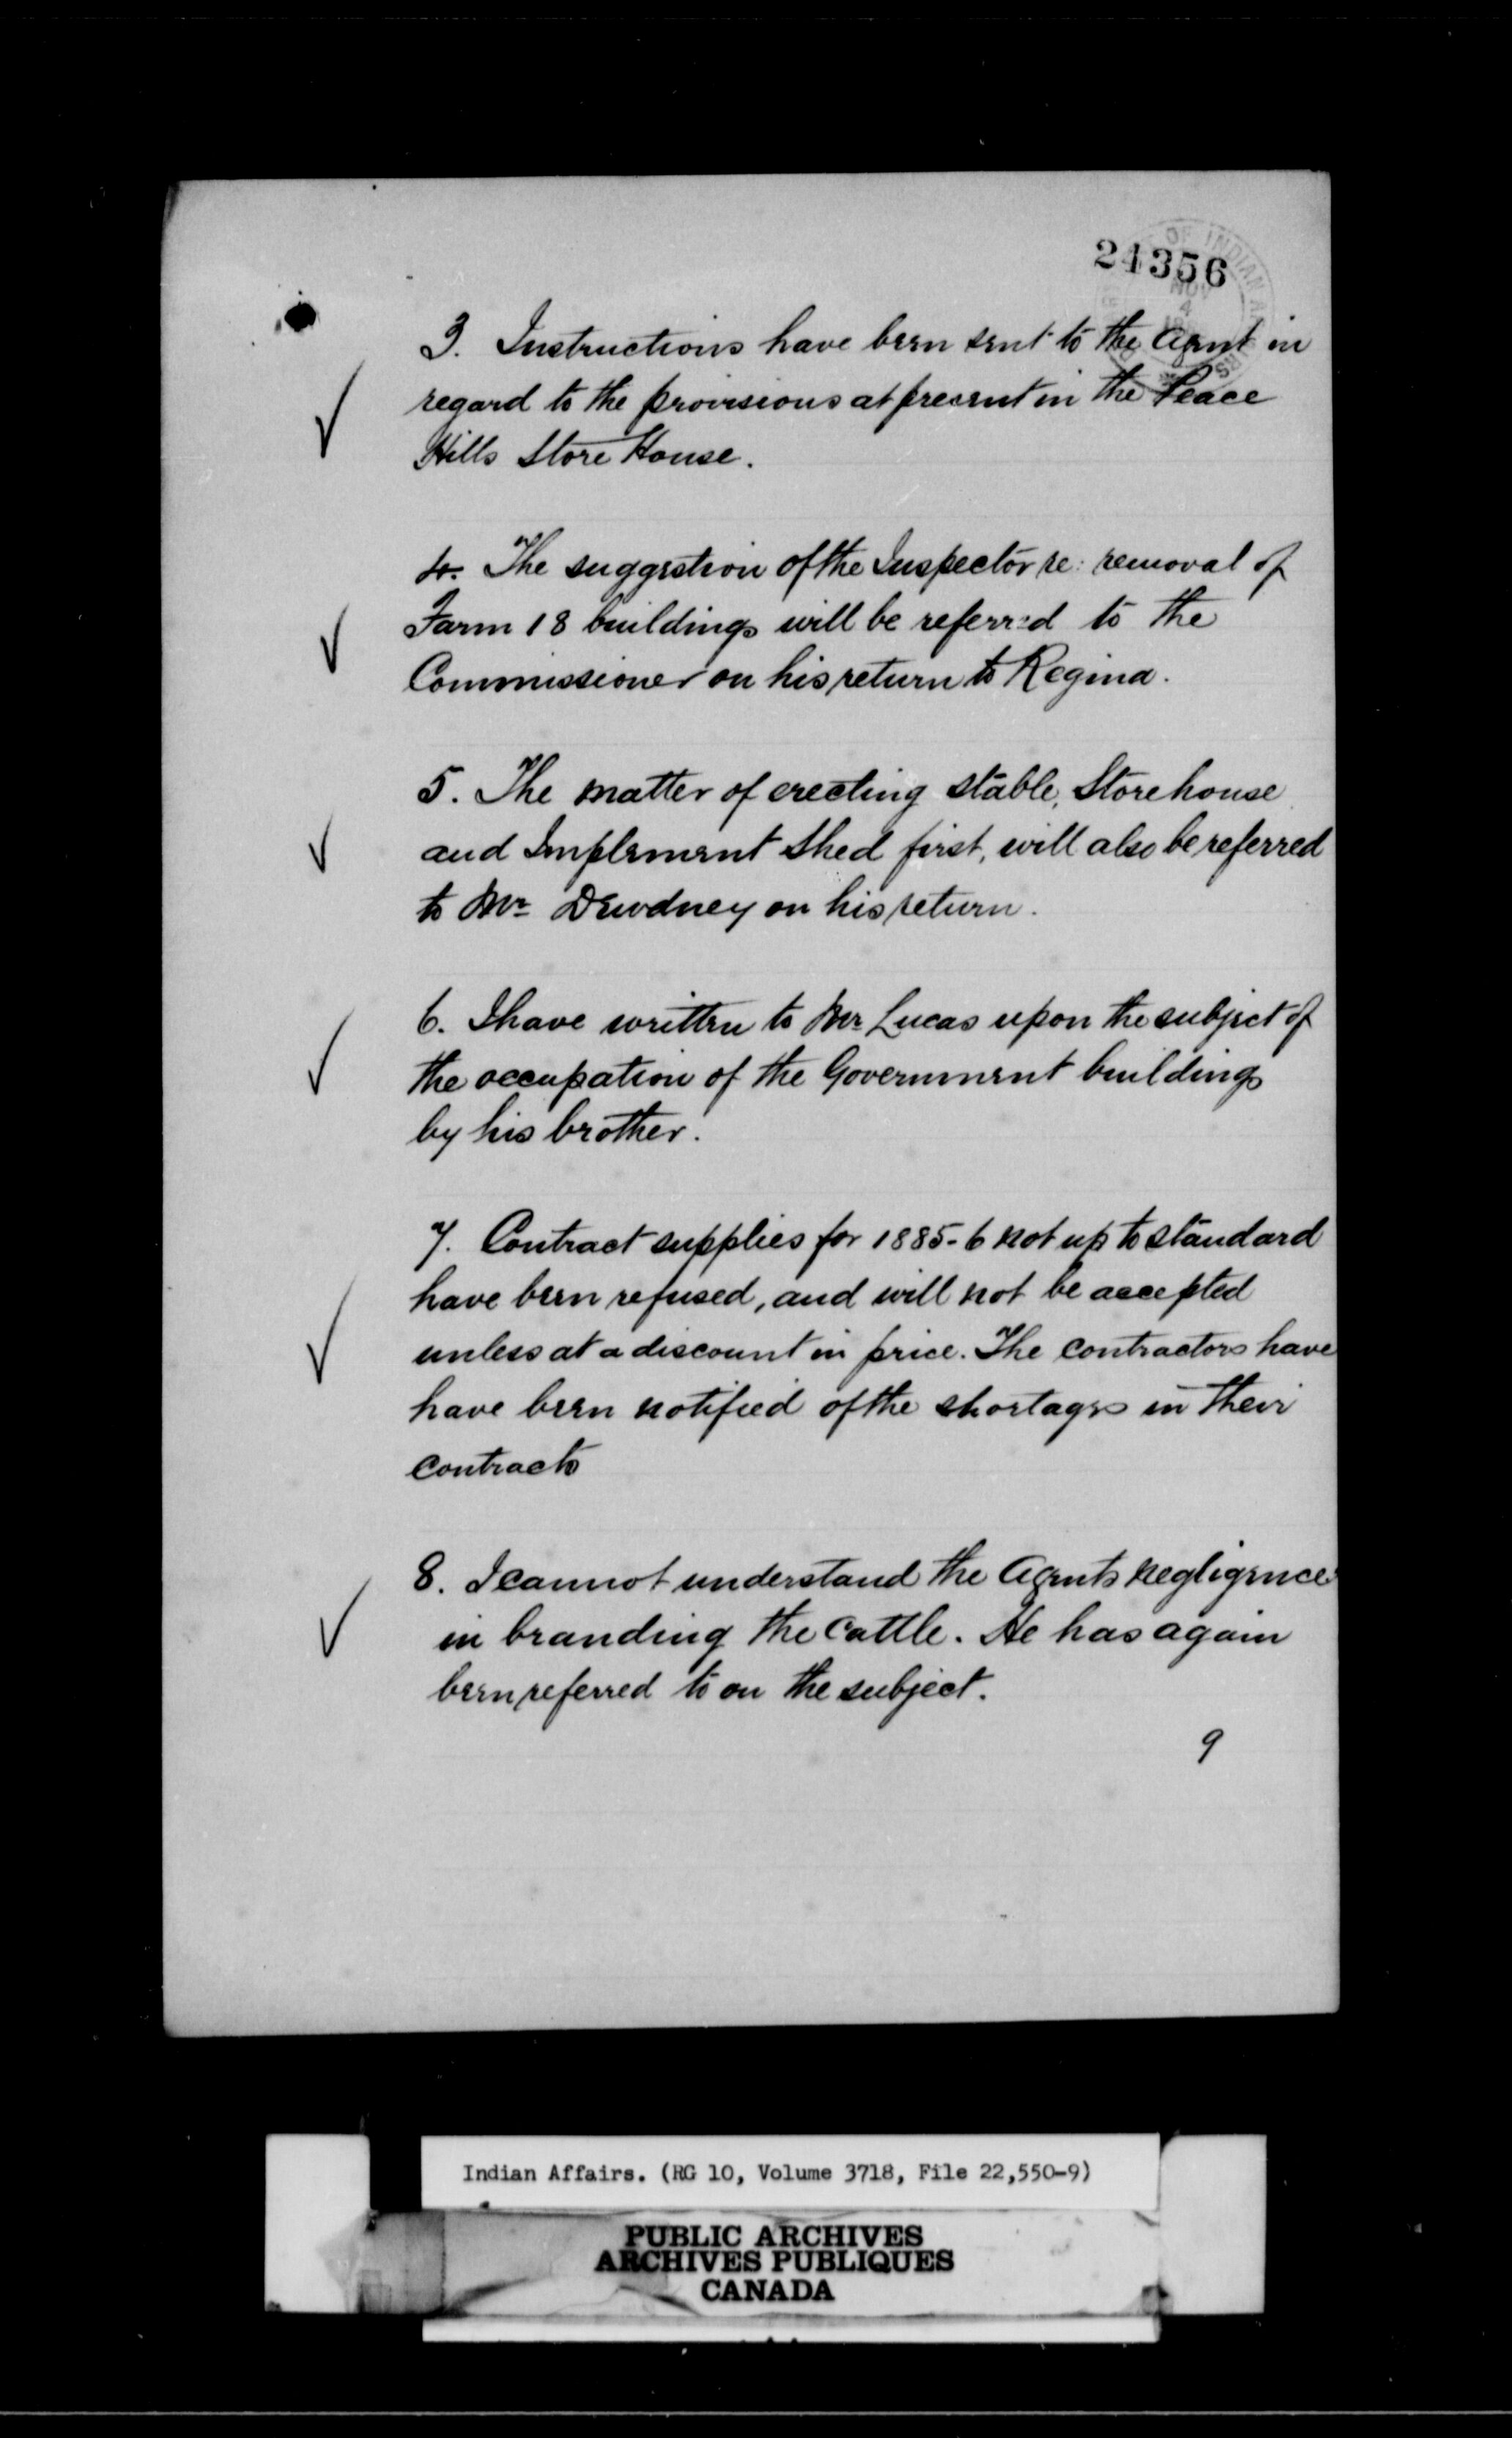 24356
OF INDIAN
NOV
4
3. Instructions have been sent to the Agent in
regard to the provisions at present in the Peace
Hills Store House.
4. The suggestion of the Inspector re: removal of
Farm 18 buildings will be referred to the
Commissioner on his return to Regina.
5. The matter of erecting stable, Storehouse
and Implement Shed first, will also be referred
to Mr Dewdney on his return.
6. I have written to Mr Lucas upon the subject of
the occupation of the Government buildings
by his brother.
7. Contract supplies for 1885-6 not up to standard
have been refused, and will not be accepted
unless at a discount in price. The contractors have
have been notified of the shortages in their
contracts
8. I cannot understand the Agents negligence
in branding the Cattle. He has again
been referred to on the subject.
9
Indian Affairs. (RG 10, Volume 3718, File 22,550-9)
PUBLIC ARCHIVES
ARCHIVES PUBLIQUES
CANADA